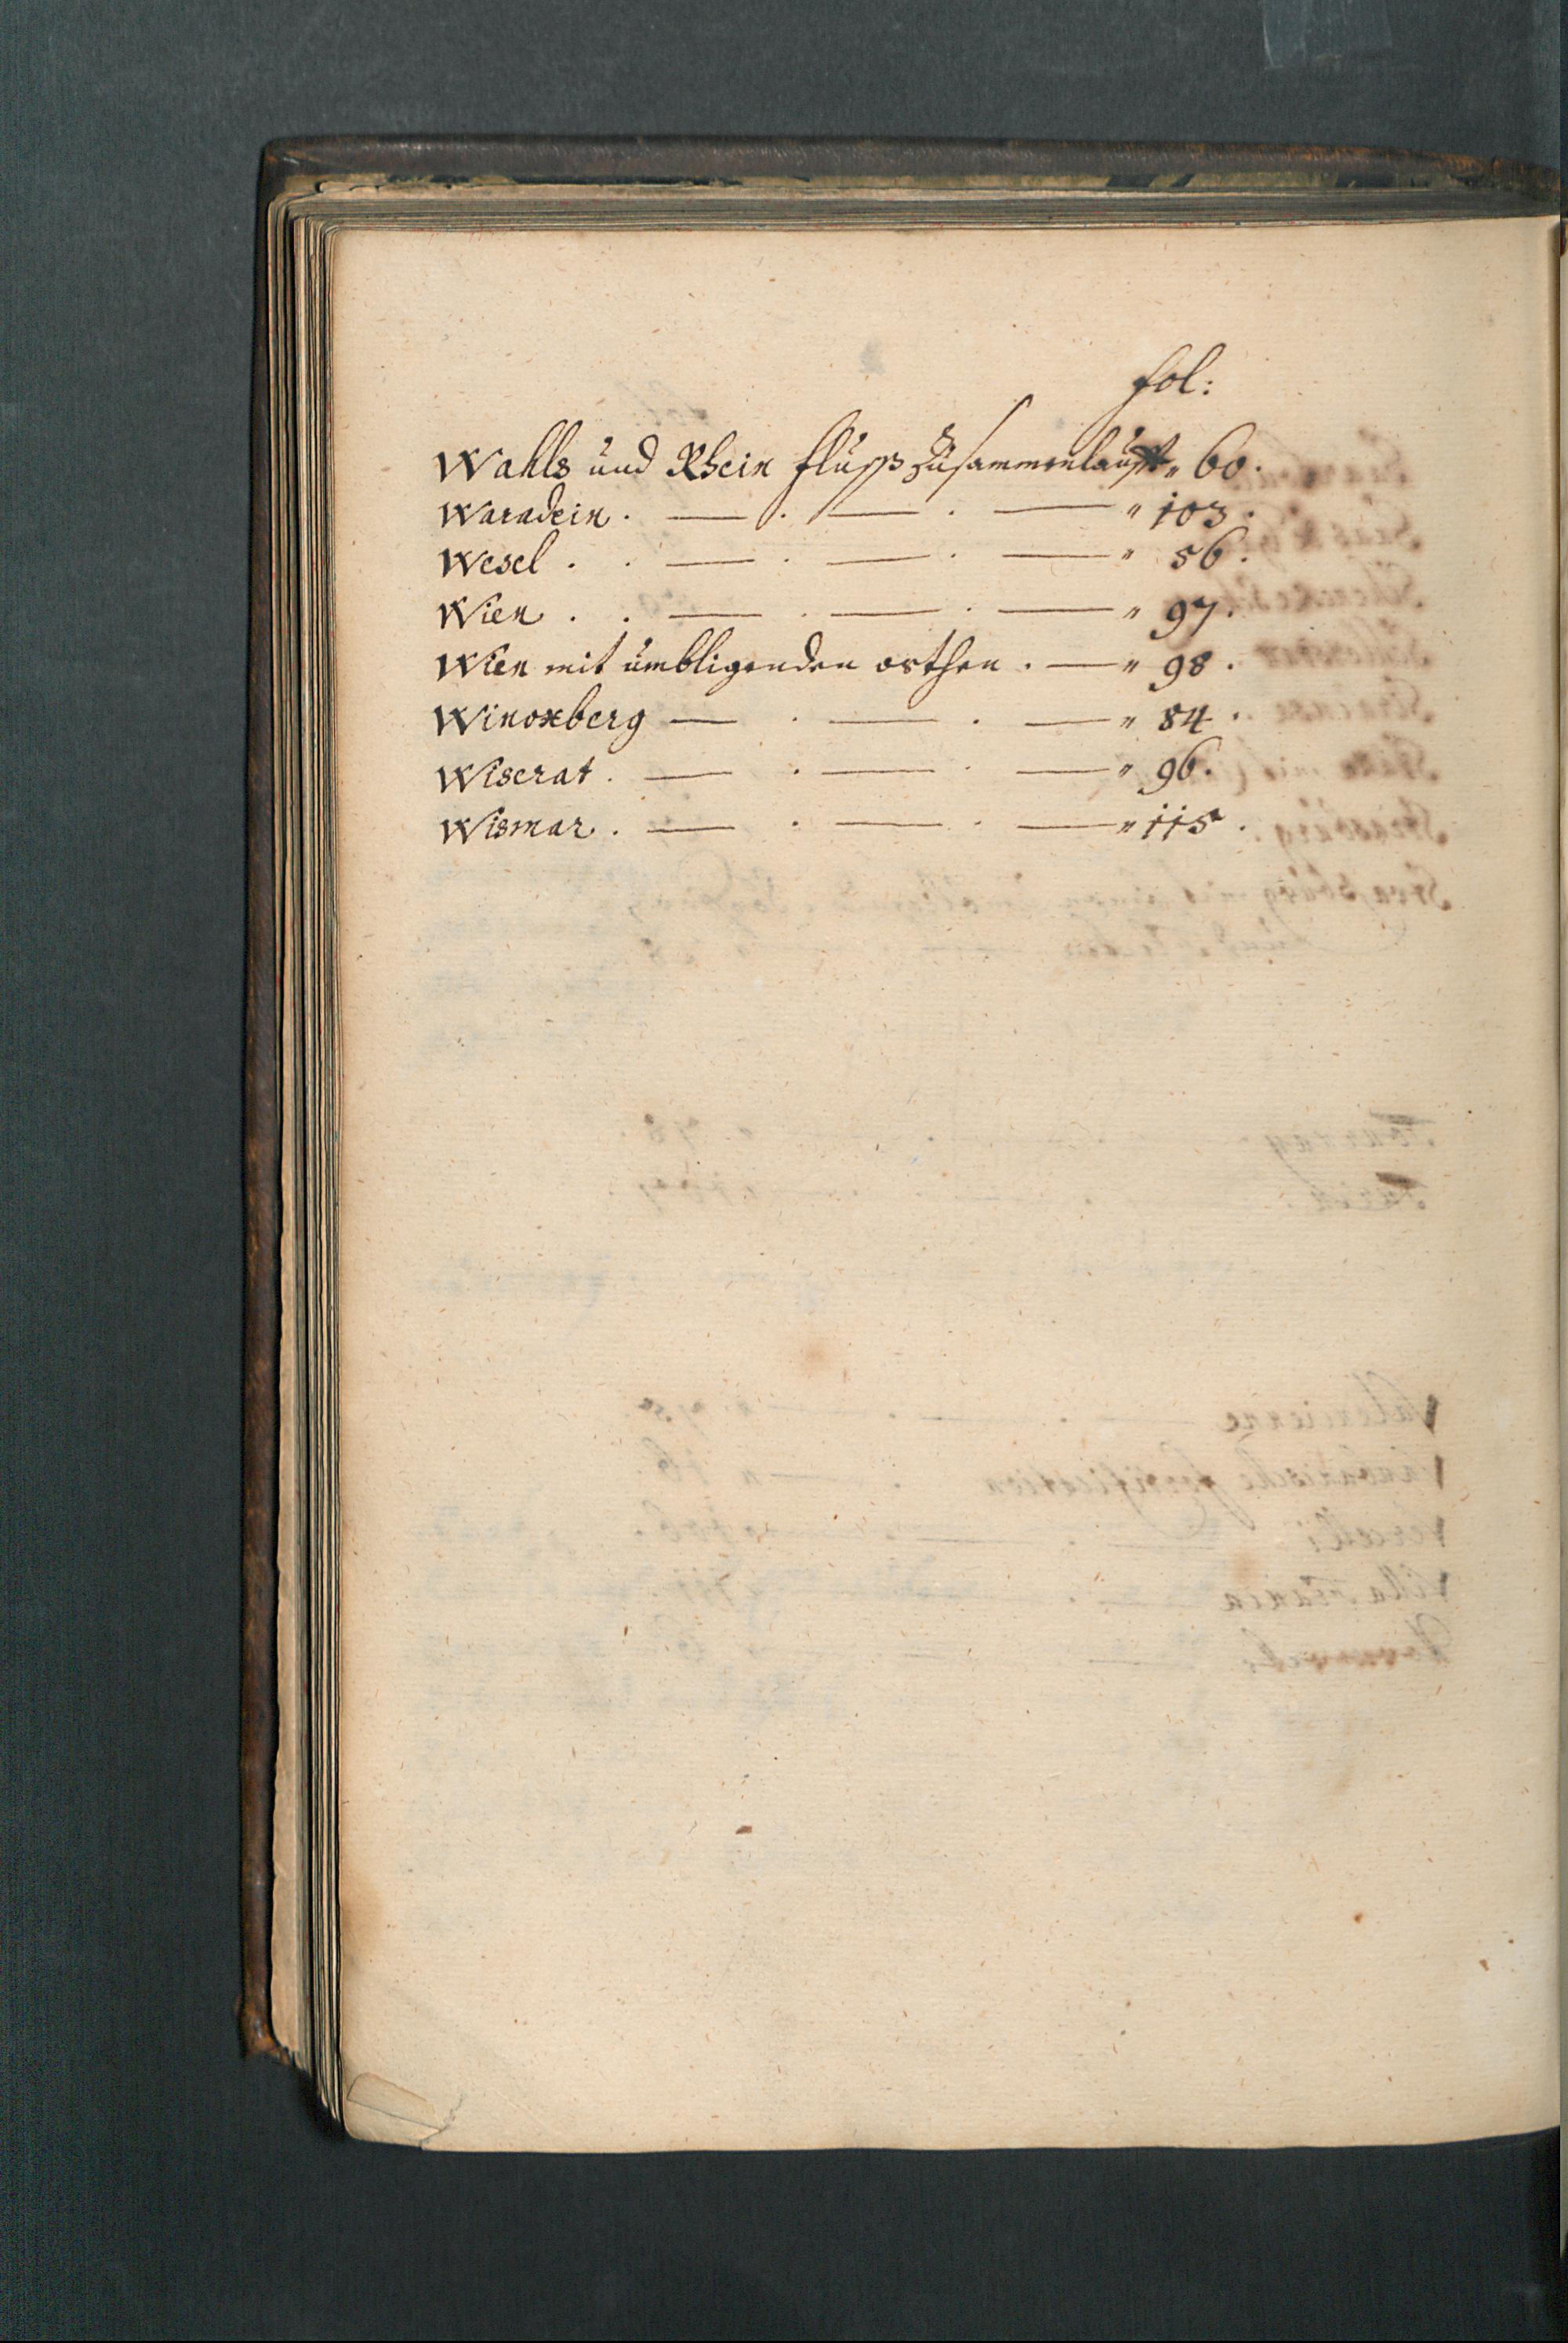 fol:
Wahls ŭnd Rhein flŭss zŭsammenlaŭfft „ 60.
Waradein . — . — . — „ 103.
Wesel . . — . — . — „ 56.
Wien . . — . — . — „ 97.
Wien mit ŭmbligenden orthen . — „ 98.
Winoxberg — . — . — „ 84.
Wiserat . — . — . — „ 96.
Wismar . — . — . — „ 115.